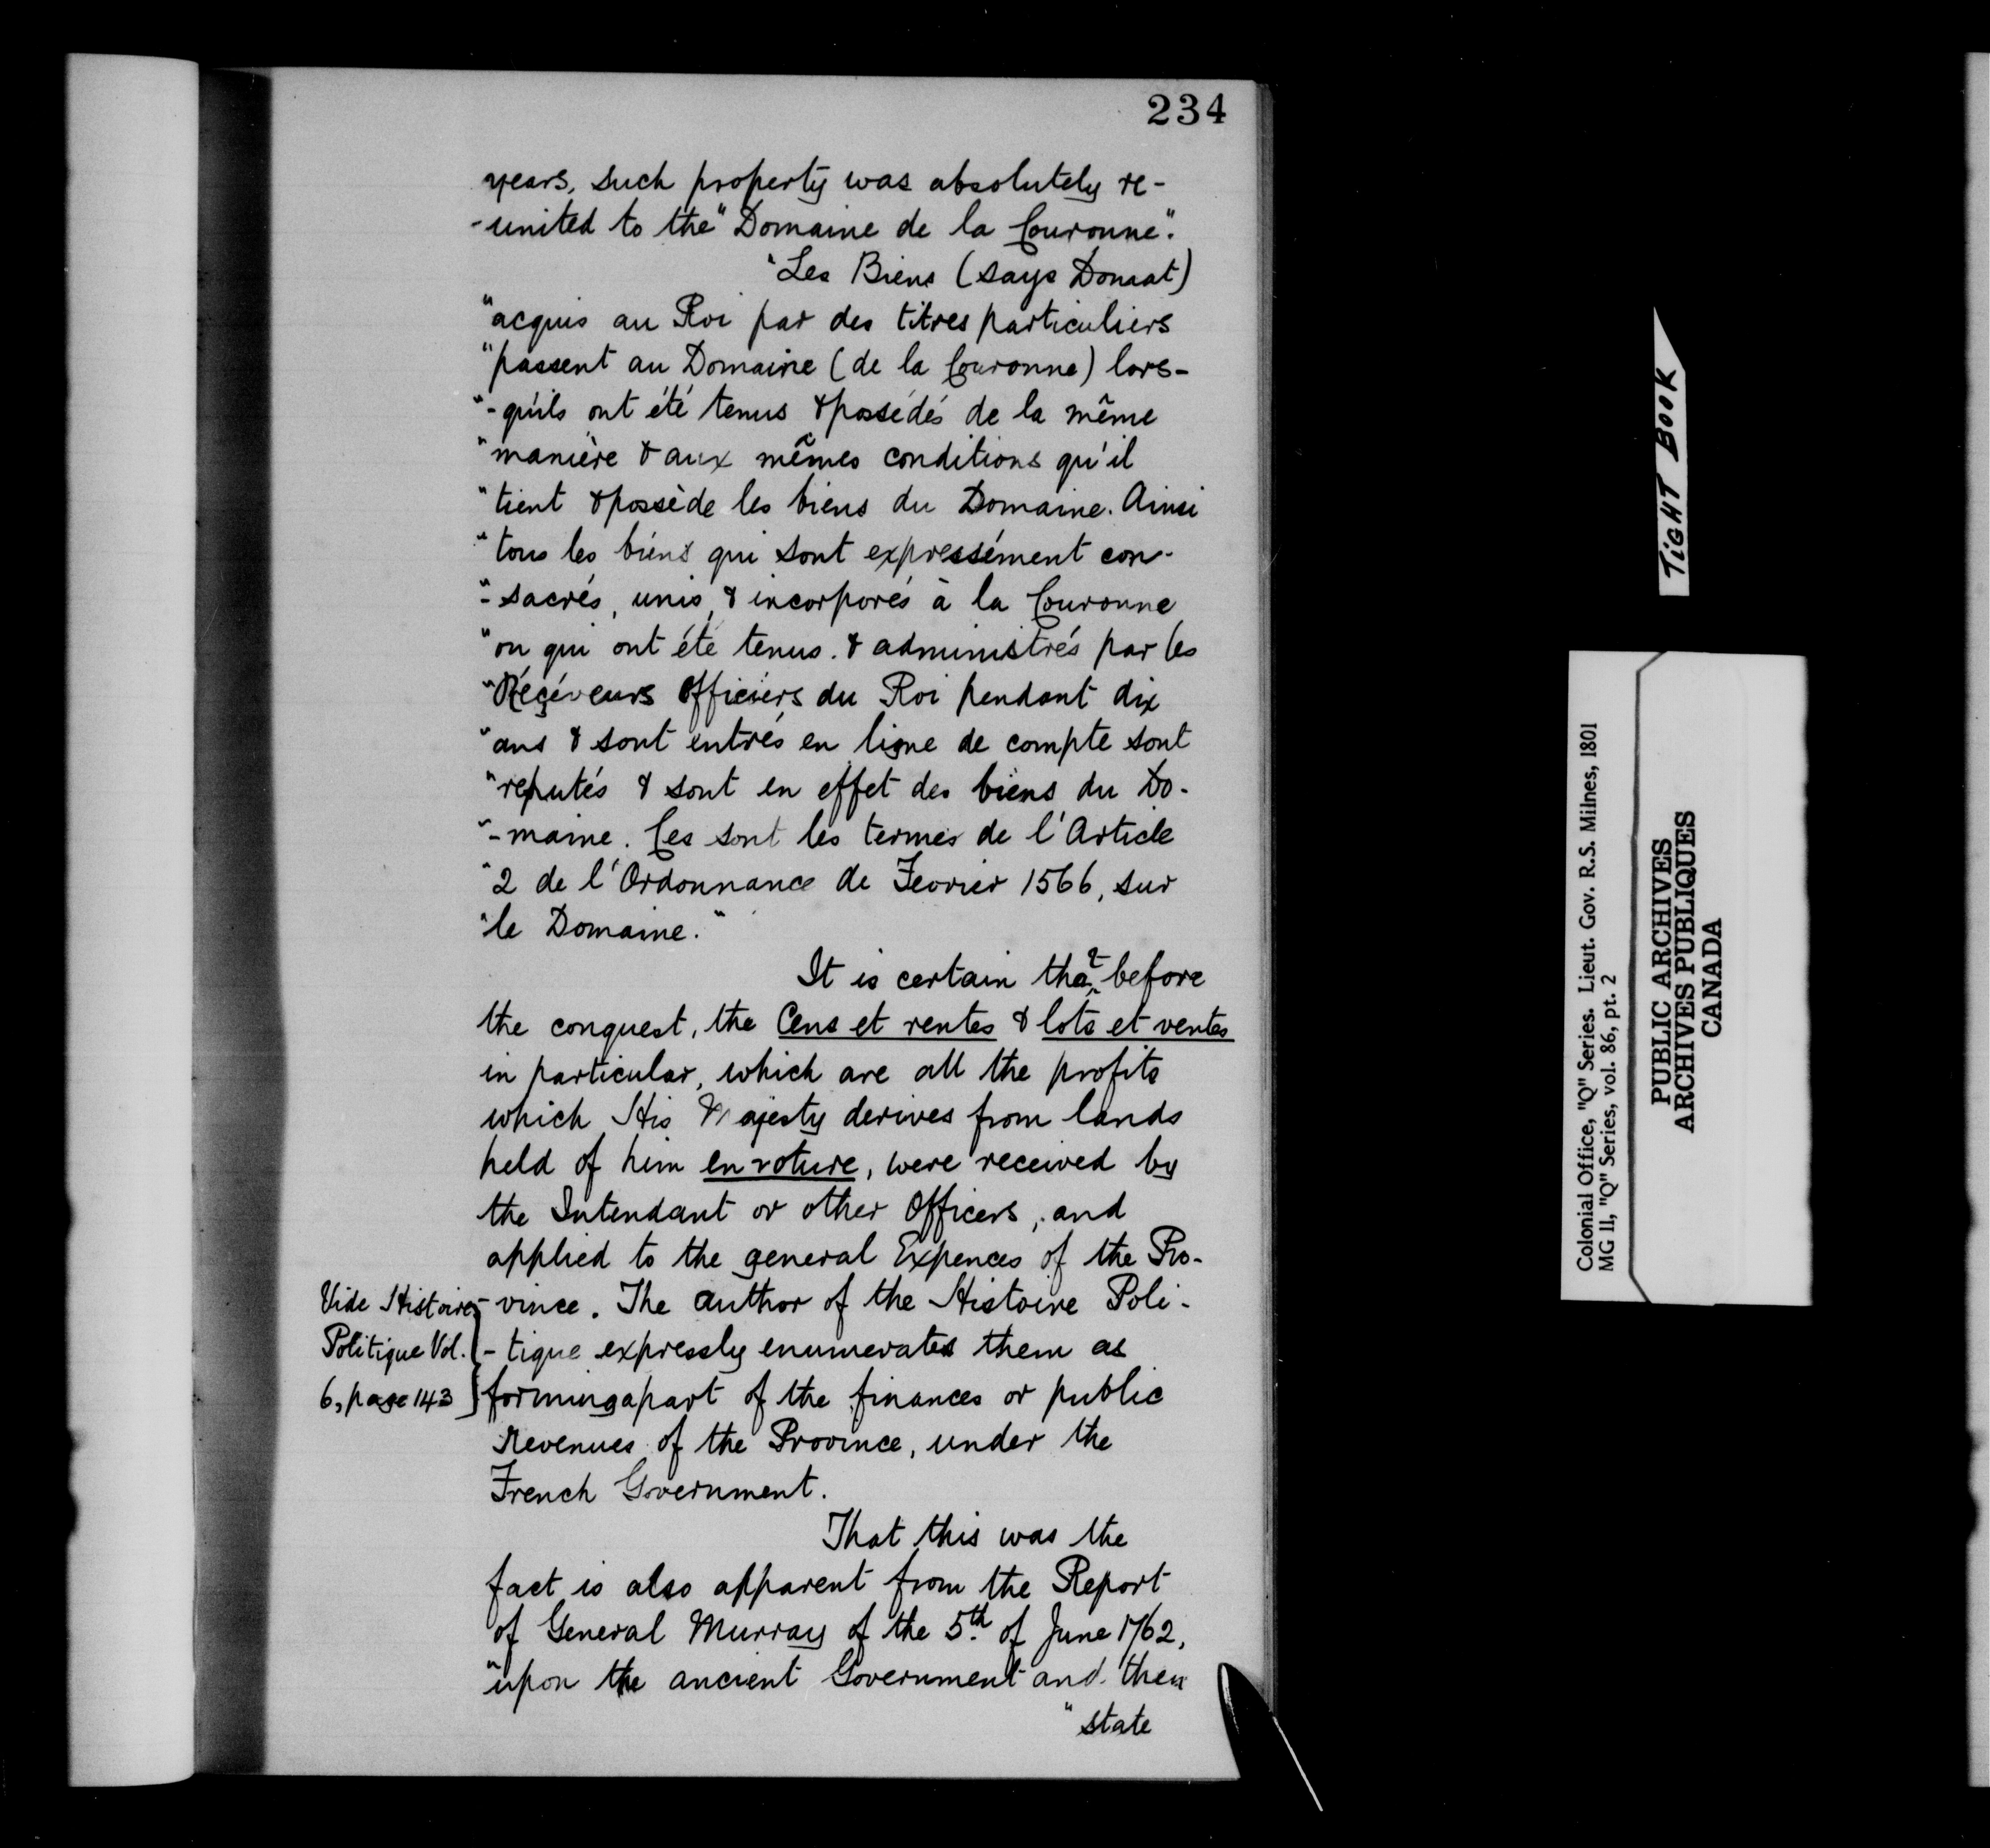 234
years, such property was absolutely re-
-united to the "Domaine de la Couronne."
"Les Biens (says Domat)
"acquis au Roi par des titres particuliers
"passent au Domaine (de la Couronne) lors-
"-qu'ils ont été tenus & possédés de la même
"manière & aux mêmes conditions qu'il
"tient & possède les biens du Domaine. Ainsi
"tous les biens qui sont expressément con-
"-sacrés, unis, & incorporés à la Couronne
"ou qui ont été tenus. & administrés par les
"Réçéveurs Officiers du Roi pendant dix
"ans & sont entrés en ligne de compte sont
"reputés & sont en effet des biens du Do-
"-maine. Ces sont les termes de l'Article
"2 de l'Ordonnance de Fevrier 1566, sur
"le Domaine."
It is certain that before
the conquest, the Cens et rentes & lots et ventes
in particular, which are all the profits
which His Majesty derives from lands
held of him en roture, were received by
the Intendant or other Officers, and
applied to the general Expences of the Pro-
-vince. The author of the Histoire Poli-
-tique expressly enumerates them as
forming a part of the finances or public
Revenues of the Province, under the
French Government.
Vide Histoire
Politique Vol.
6, page 143
That this was the
fact is also apparent from the Report
of General Murray of the 5th of June 1762,
"upon the ancient Government and then
"state
TIGHT BOOK
Colonial Office, "Q" Series. Lieut. Gov. R.S. Milnes, 1801
MG 11, "Q" Series, vol. 86, pt. 2
PUBLIC ARCHIVES
ARCHIVES PUBLIQUES
CANADA